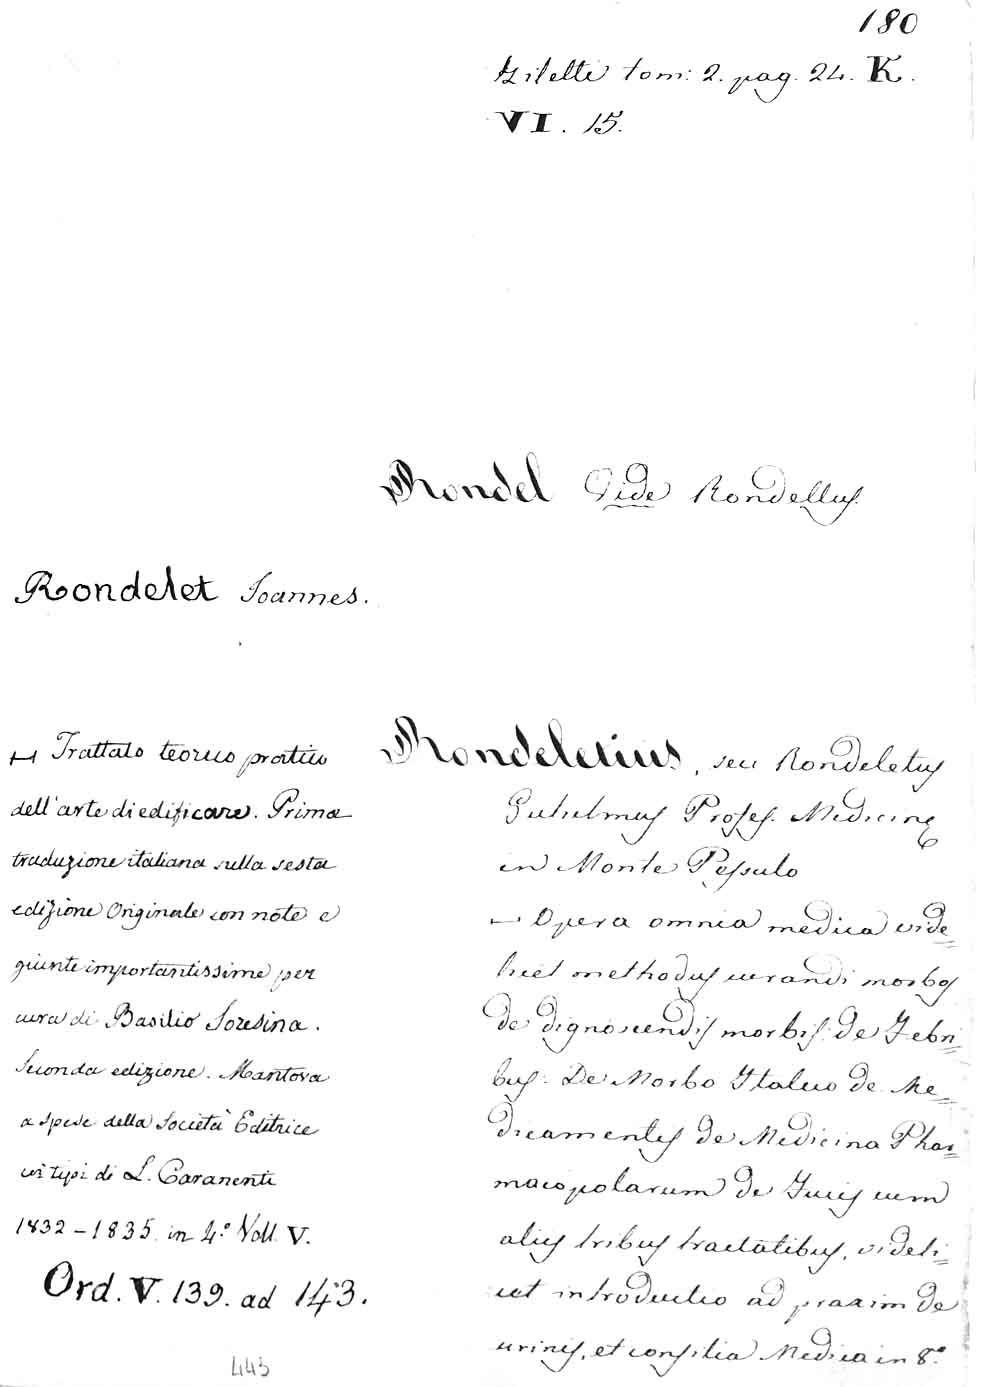 180
Giletti tom: 2. pag. 24. K.
VI. 15.
Rondel Vide Rondellus.
Rondelet Ioannes.
Trattato teorico pratico
dell'arte di edificare. Prima
traduzione italiana sulla sesta
edizione Originale con note e
giunte importantissime per
cura di Basilio Soresina.
Seconda edizione. Mantova
a spese della Società Editrice
coi tipi di L. Caranenti
1832 – 1835. in 4.° Voll. V.
Ord. V. 139. ad 143.
Rondeletius, seu Rondeletus
Gulielmus Profes. Medicinę
in Monte Pessulo
Opera omnia medica vide=
licet methodus curandi morbos
de dignoscendis morbis: de Febri=
bus: De Morbo Italico de Me=
dicamentis de Medicina Phar=
macopolarum de Fucis cum
aliis tribus tractatibus, videli=
cet introductio ad praxim de
urinis, et consilia Medica in 8.°
443